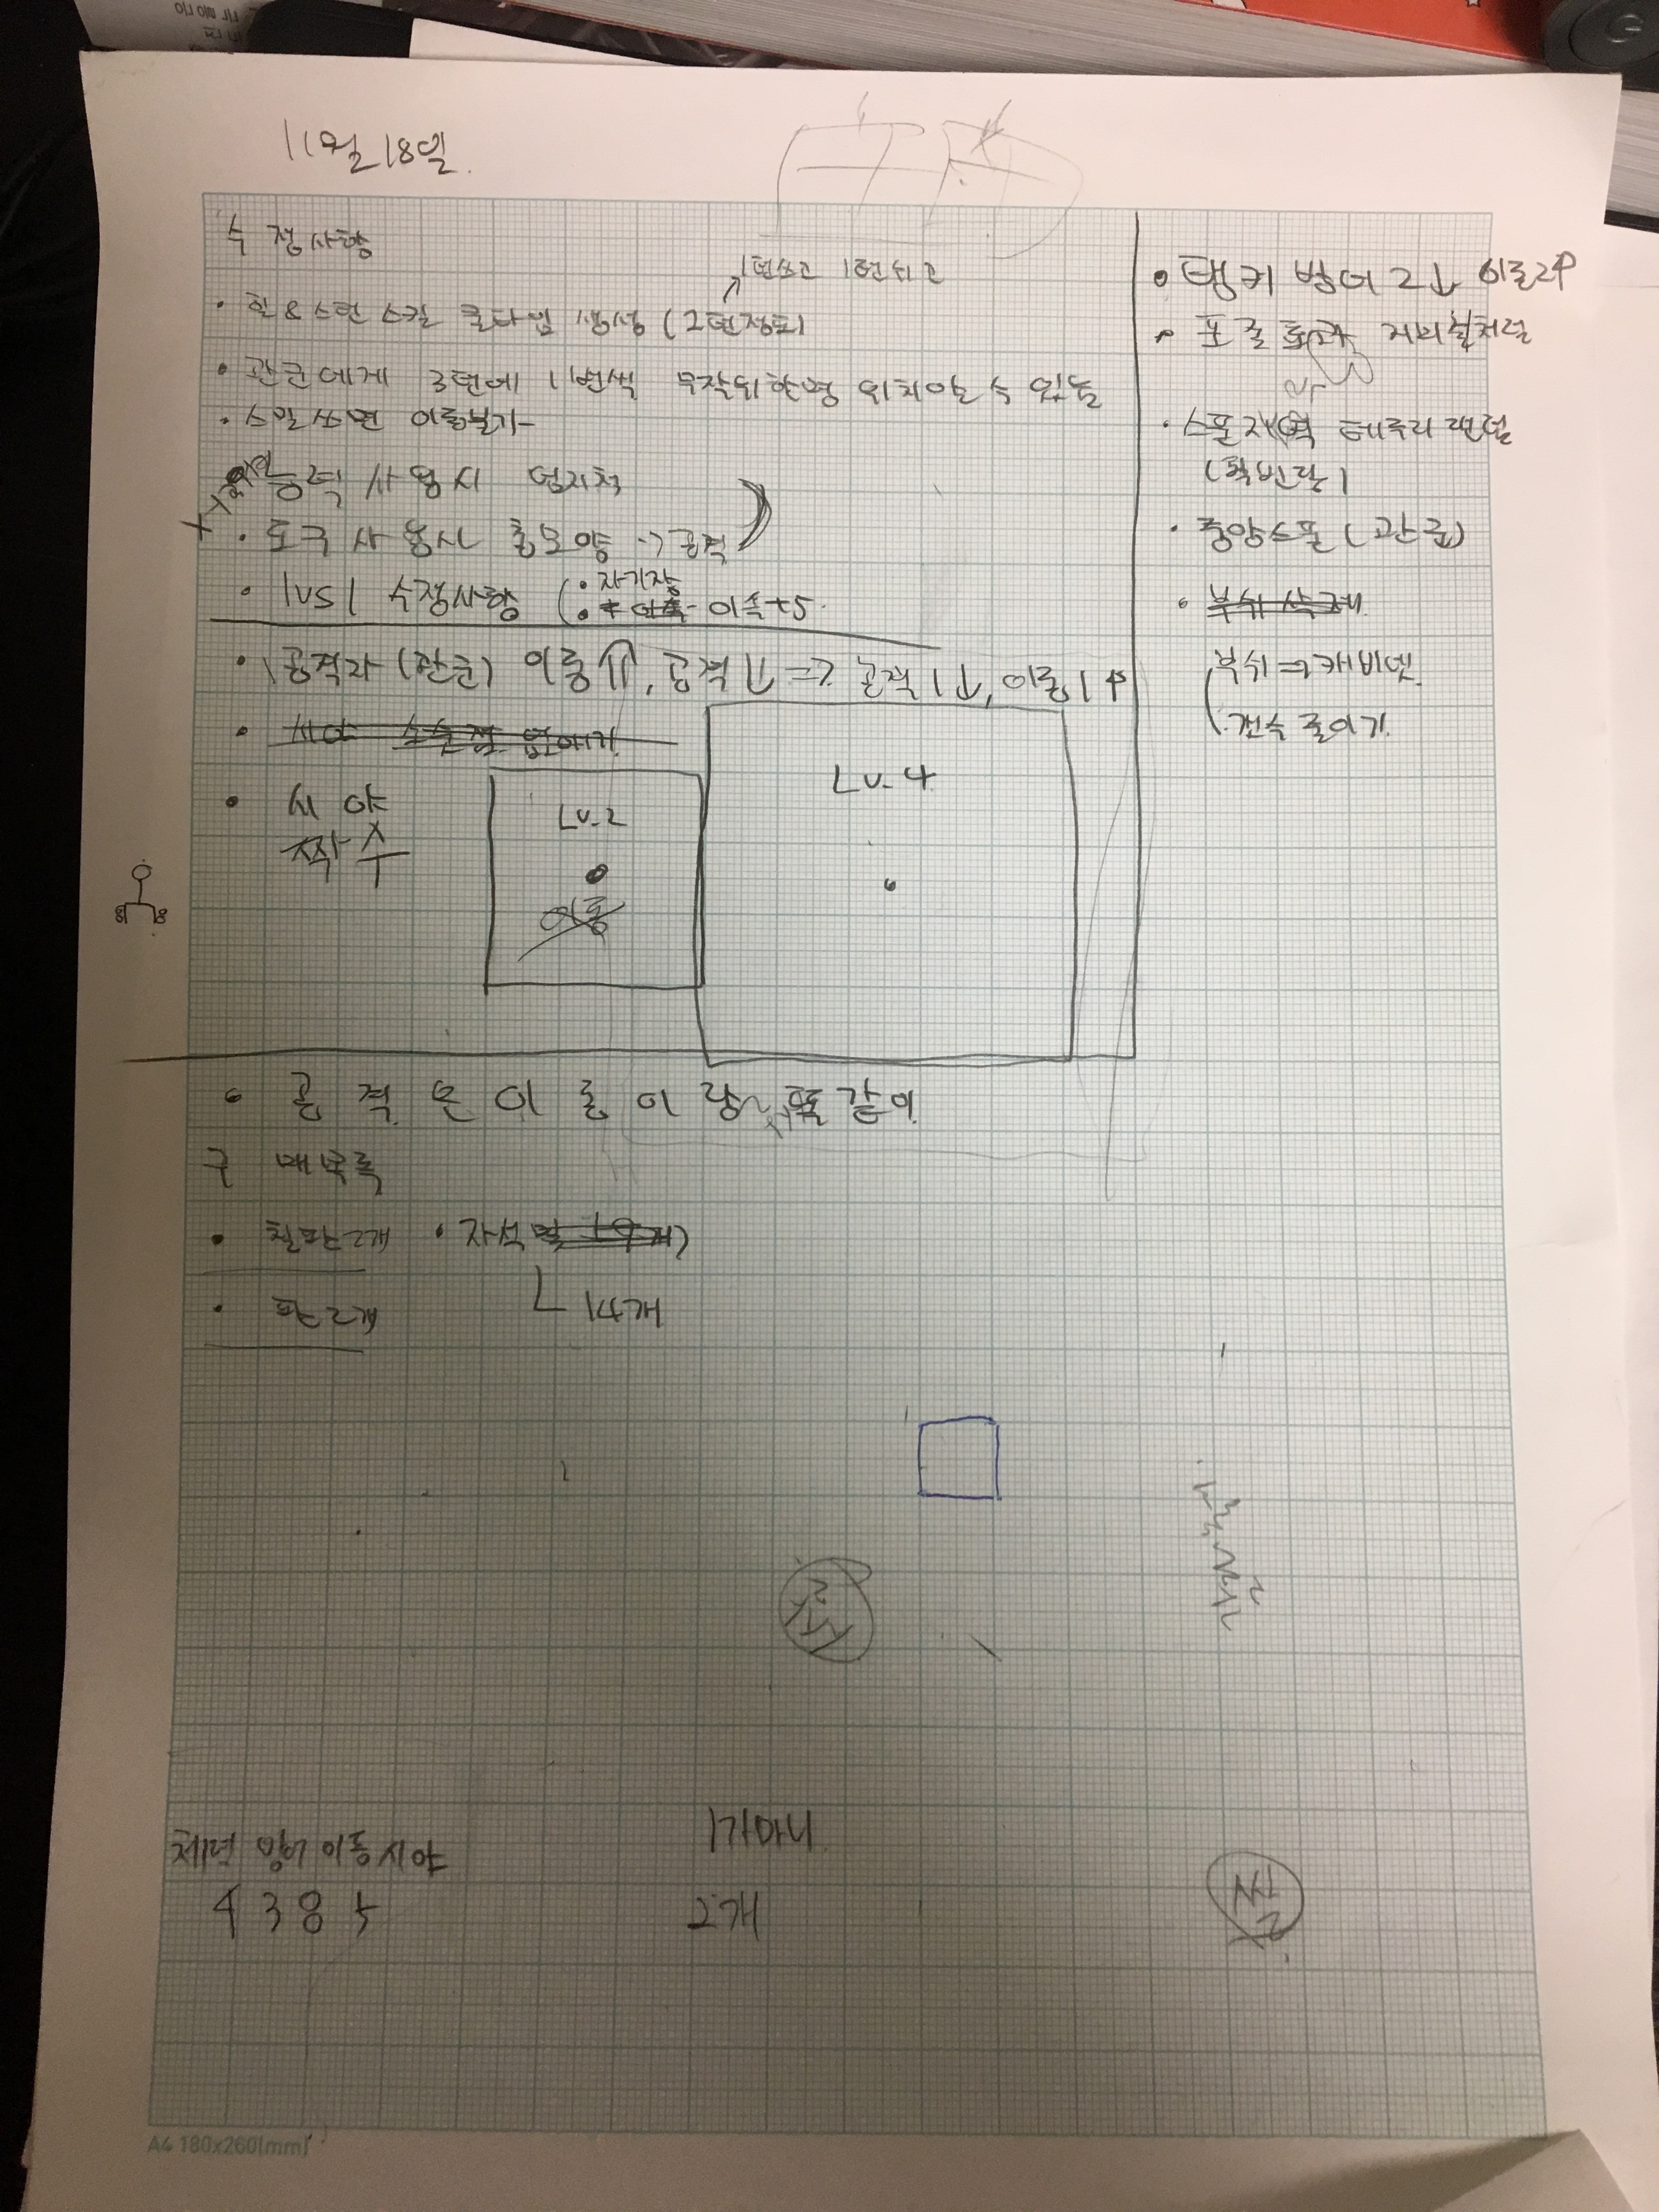 11월 18일.
수정사항
1턴쓰고 1턴쉬고
· 힐&스턴 스킬 쿨타임 생성 (2턴정도)
· 관군에게 3턴에 1번씩 무작위한명 위치알 수 있음
· 스킬쓰면 이동불가
능력 사용시 엄지척
· 도구 사용시 총모양 -> 공격
· 1vs1 수정사항 (· 자기장
· 이속+5
· 공격자 (관군) 이동↑, 공격↓ => 공격1↓, 이동1↑
· 시야 없애기
· 시야
짝수
Lv.2
이동
Lv.4
· 공격은 이동이랑 똑같이
구매목록
· 철판2개 · 자석
14개
· 판2개
· 탱커 방어 2↓ 이동2↑
· 포졸
· 스폰지역 테두리 랜덤
· 중앙스폰 (관군)
· 부쉬 삭제
부쉬 => 캐비넷
갯수 줄이기
체력 방어 이동 시야
4 3 8 5
1가마니
2개
A4 180x260(mm)